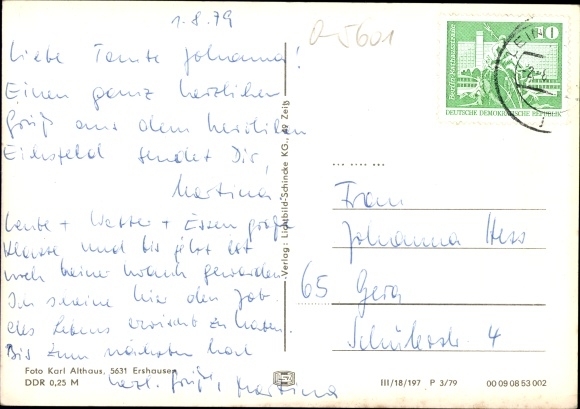 1.8.79
Liebe Tante Johanna!
Einen ganz herzlichen
Gruß aus dem herrlichen
Eichsfeld sendet Dir,
Martina.
Leute + Wetter + Essen große
Klasse und bis jetzt ist
noch keiner krank geworden.
Ich scheine hier den Job
des Lebens erwischt zu haben.
Bis zum nächsten Mal
herzl. Grüße, Martina
Foto Karl Althaus, 5631 Ershausen
DDR 0,25 M
Verlag: Lichtbild-Schincke KG., 49 Zeitz
a-5601
10
DEUTSCHE DEMOKRATISCHE REPUBLIK
Frau
Johanna Hess
65 Gera
Schülerstr. 4
III/18/197 P 3/79 00 09 08 53 002